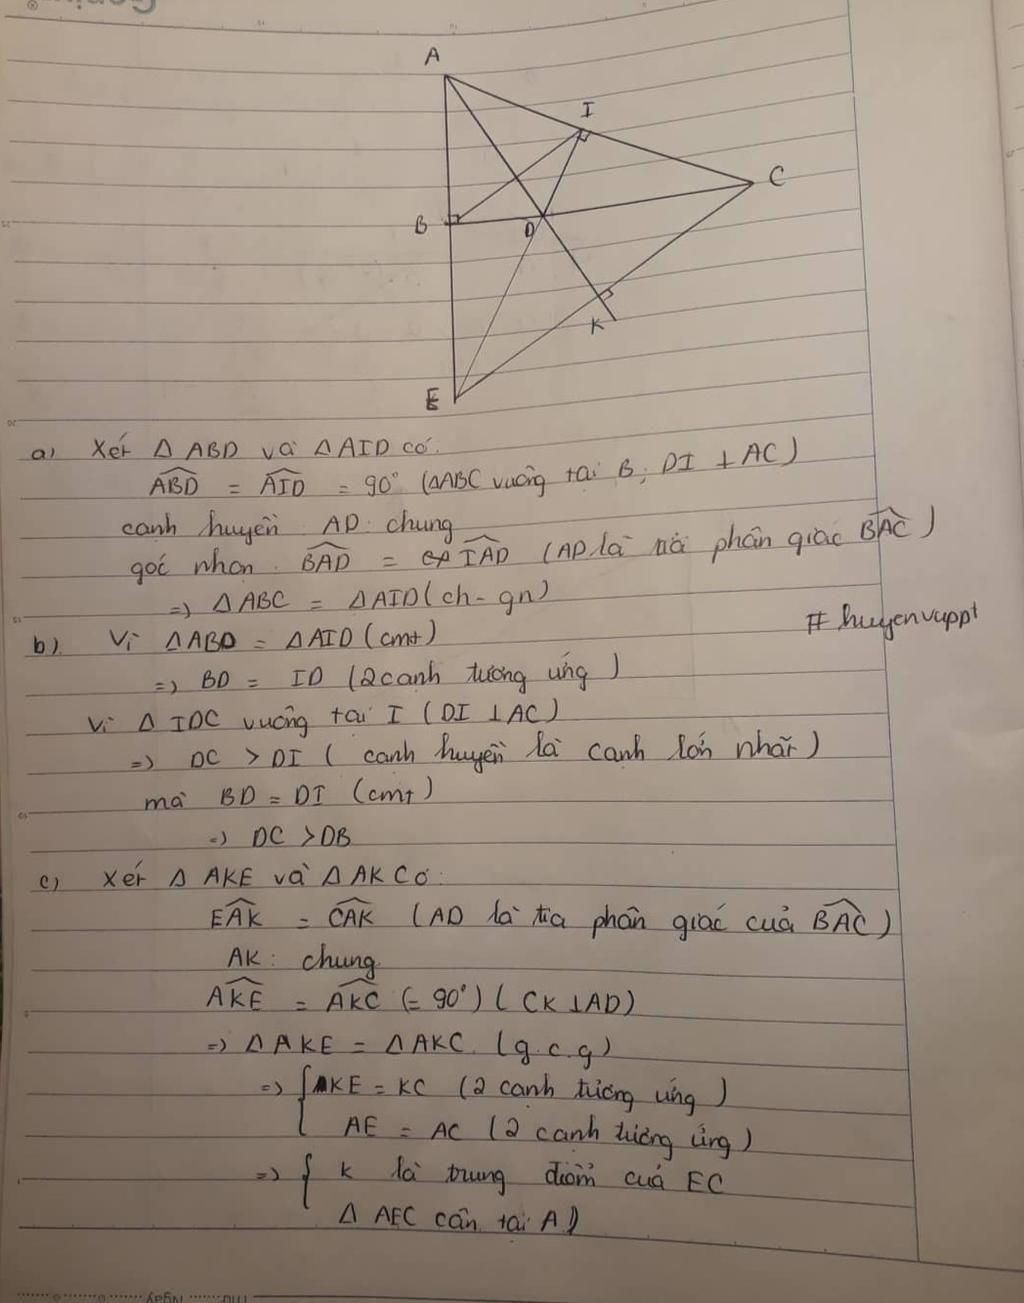 A
I
C
B
D
K
E
a) Xét Δ ABD và Δ AID có:
ABD = AID = 90° (ΔABC vuông tại B, DI ⊥ AC)
cạnh huyền AD chung
góc nhọn BAD = IAD (AD là tia phân giác BAC)
=> Δ ABC = Δ AID (ch - gn)
# huyenvuppt
b). Vì Δ ABD = Δ AID (cmt)
=> BD = ID (2 cạnh tương ứng)
Vì Δ IDC vuông tại I (DI ⊥ AC)
=> DC > DI (cạnh huyền là cạnh lớn nhất)
mà BD = DI (cmt)
=> DC > DB
c) Xét Δ AKE và Δ AKC ó:
EAK = CAK (AD là tia phân giác của BAC)
AK: chung
AKE = AKC (= 90°) (CK ⊥ AD)
=> Δ AKE = Δ AKC (g.c.g)
=> { KE = KC (2 cạnh tương ứng)
AE = AC (2 cạnh tương ứng)
=> { K là trung điểm của EC
Δ AEC cân tại A)